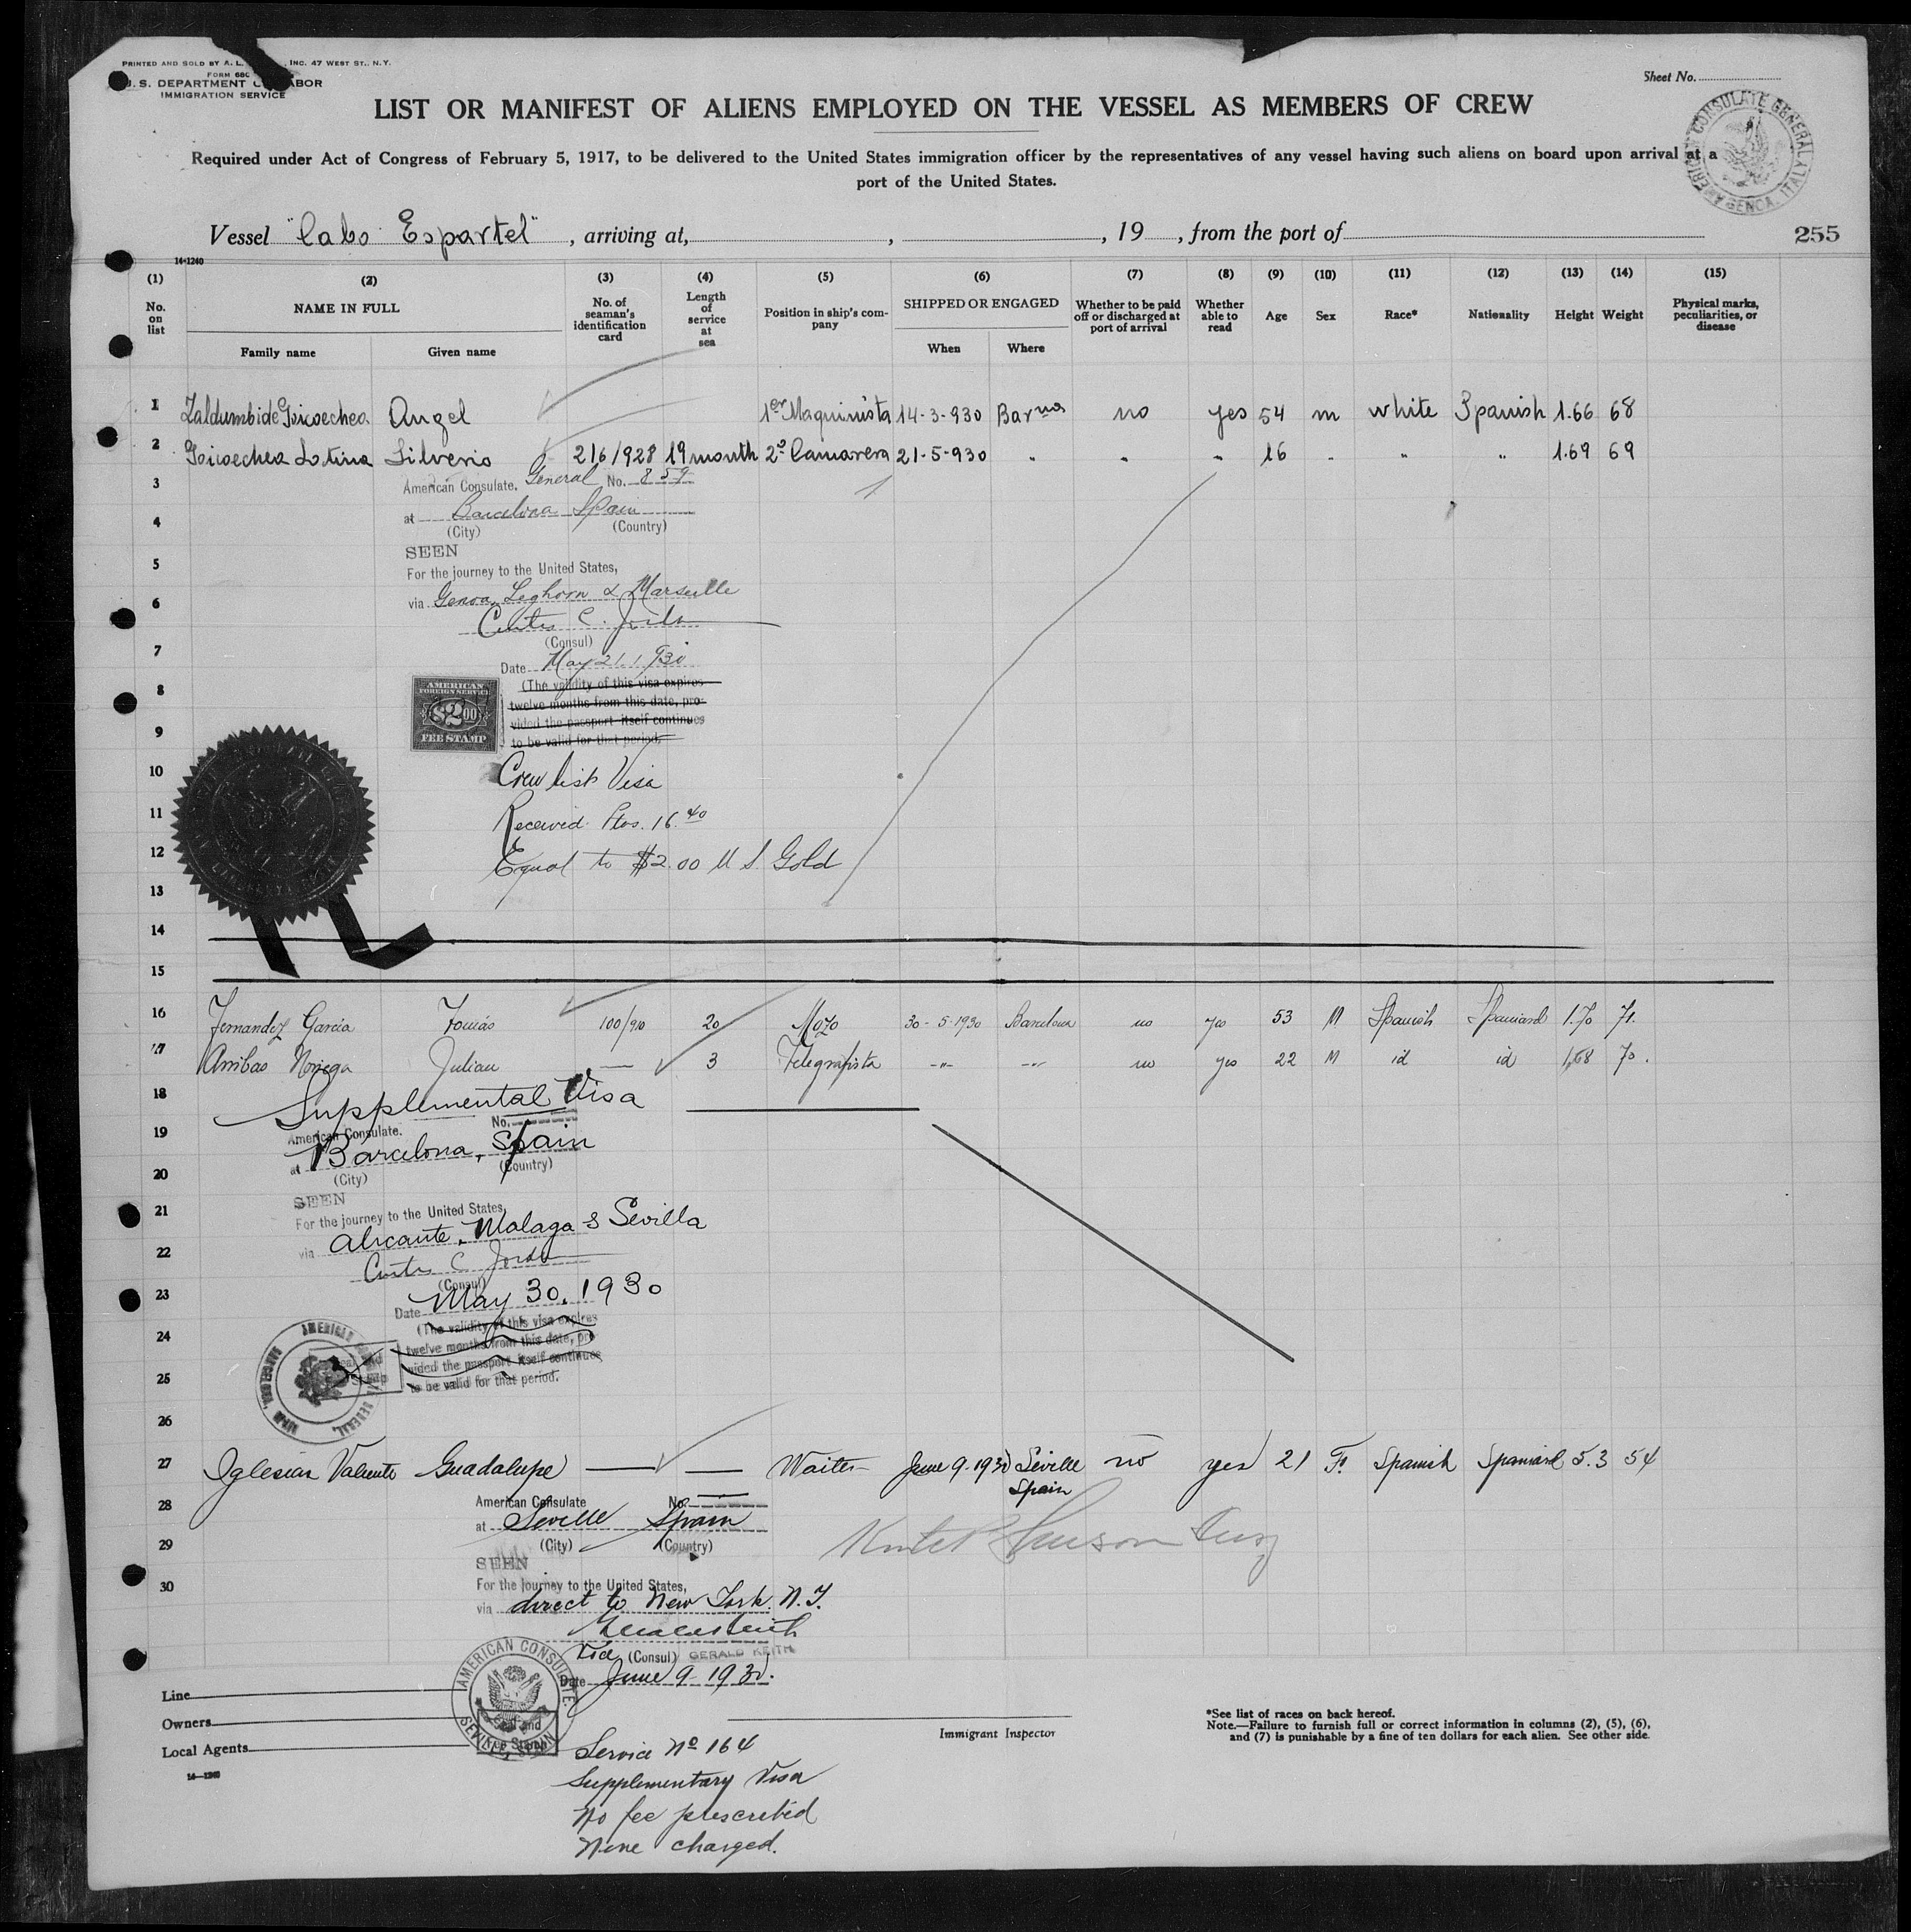 PRINTED AND SOLD BY A. L. INC. 47 WEST ST., N. Y.
FORM 680
U. S. DEPARTMENT OF LABOR
IMMIGRATION SERVICE
Sheet No.
LIST OR MANIFEST OF ALIENS EMPLOYED ON THE VESSEL AS MEMBERS OF CREW
Required under Act of Congress of February 5, 1917, to be delivered to the United States immigration officer by the representatives of any vessel having such aliens on board upon arrival at a
port of the United States.
AMERICAN CONSULATE GENERAL GENOA, ITALY
Vessel "Cabo Espartel", arriving at, , , 19 , from the port of
255
14-1240
(1) (2) (3) (4) (5) (6) (7) (8) (9) (10) (11) (12) (13) (14) (15)
No. on list
NAME IN FULL
Family name Given name
No. of seaman's identification card
Length of service at sea
Position in ship's company
SHIPPED OR ENGAGED
When Where
Whether to be paid off or discharged at port of arrival
Whether able to read
Age
Sex
Race*
Nationality
Height
Weight
Physical marks, peculiarities, or disease
1 Zaldumbide Goicoechea Angel 1er Maquinista 14-3-930 Barna no yes 54 m white Spanish 1.66 68
2 Goicoechea Lotina Silverio 216/928 19 month 2º Camarera 21-5-930 " " " 16 " " " 1.69 69
3 American Consulate. General No. 859
4 at Barcelona Spain
(City) (Country)
SEEN
5 For the journey to the United States,
6 via Genoa, Leghorn & Marseille
Curtis C. Jordan
(Consul)
7 Date May 21, 1930
8 (The validity of this visa expires
twelve months from this date, pro-
vided the passport itself continues
9 to be valid for that period.
AMERICAN FOREIGN SERVICE $2.00 FEE STAMP
10 Crew list Visa
11 Received Ptas. 16.40
12 Equal to $2.00 U S. Gold
13
14
15
16 Fernandez Garcia Tomás 100/910 20 Mozo 30-5-1930 Barcelona no yes 53 M Spanish Spaniard 1.70 71.
17 Arribas Noriega Julian — 3 Telegrafista -"- -"- no yes 22 M id id 1,68 70.
18 Supplemental Visa
19 American Consulate. No.
at Barcelona, Spain
20 (City) (Country)
SEEN
21 For the journey to the United States,
22 via Alicante, Malaga & Sevilla
Curtis C. Jordan
(Consul)
23 Date May 30, 1930
24 (The validity of this visa expires
twelve months from this date, pro
vided the passport itself continues
25 to be valid for that period.
AMERICAN CONSULATE GENERAL, BARCELONA, SPAIN
26
27 Iglesias Valiente Guadalupe — — Waiter June 9-1930 Seville Spain no yes 21 F. Spanish Spaniard 5.3 54
28 American Consulate No. —
at Seville Spain
29 (City) (Country)
SEEN
30 For the journey to the United States,
via direct to New York. N.Y.
Vice (Consul) GERALD KEITH
Date June 9-1930.
AMERICAN CONSULATE. SEVILLE, SPAIN
Seal and
Fee Stamp
Line
Owners
Local Agents
14—1240
Immigrant Inspector
*See list of races on back hereof.
Note.—Failure to furnish full or correct information in columns (2), (5), (6),
and (7) is punishable by a fine of ten dollars for each alien. See other side.
Service Nº 164
Supplementary Visa
No fee prescribed
None charged.